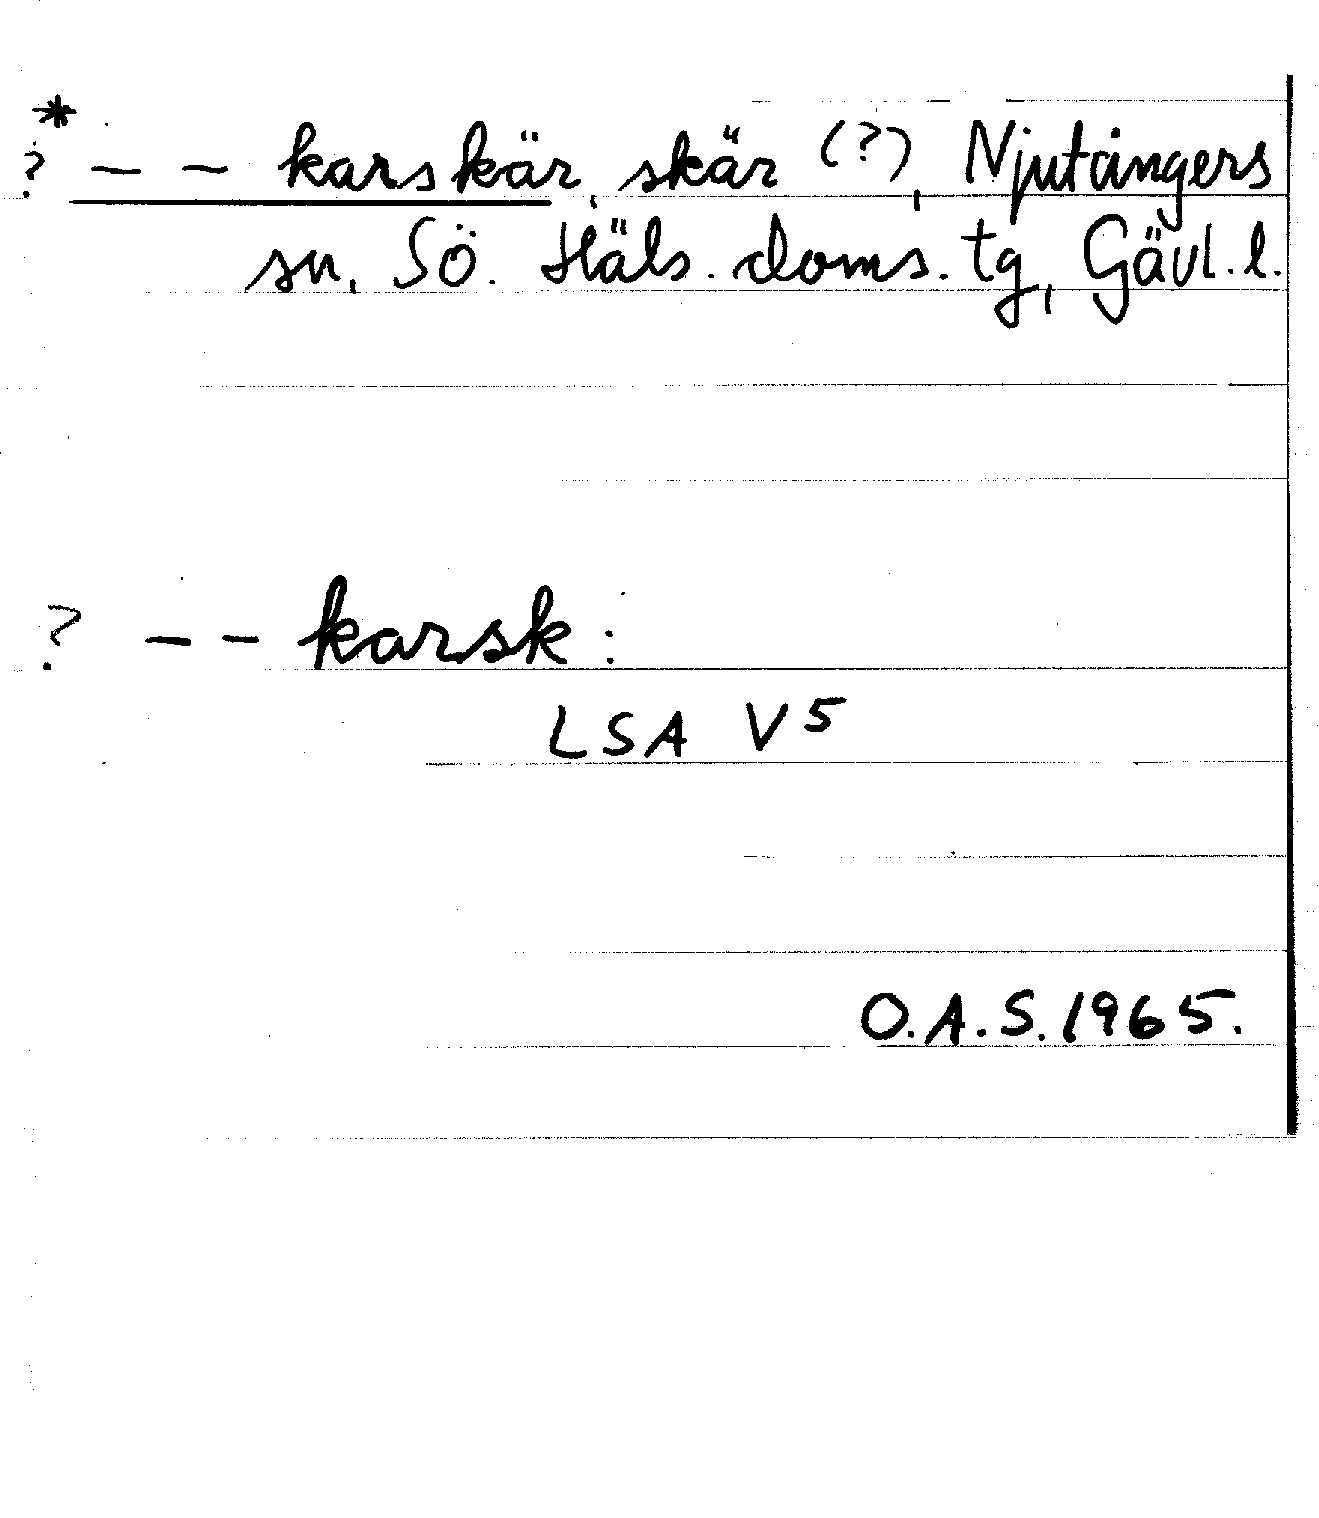 *
? – – karskär, skär (?), Njutångers
sn, Sö. Häls. doms. tg, Gävl. l.
? – – karsk :
LSA V 5
O.A.S. 1965.